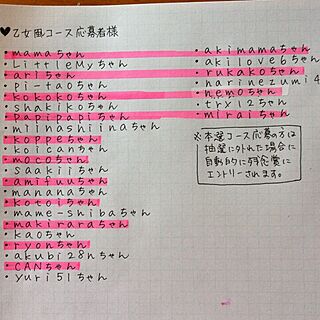 ♥乙女風コース応募者様
・mamaちゃん
・LittleMyちゃん
・ariちゃん
・pi-taoちゃん
・kokokoちゃん
・shakikoちゃん
・papipapiちゃん
・miinashiinaちゃん
・koppeちゃん
・koicanちゃん
・mocoちゃん
・saakiiちゃん
・amifuuちゃん
・mananaちゃん
・kotoiちゃん
・mame-shibaちゃん
・makiraraちゃん
・kaoちゃん
・ryonちゃん
・akubi28nちゃん
・CANちゃん
・yuri51ちゃん
・akimamaちゃん
・akilove6ちゃん
・rukakoちゃん
・harinezumi4
・nemoちゃん
・try12ちゃん
・miraiちゃん
※本選コース応募の方は
抽選に外れた場合に
自動的に残念賞に
エントリーされます。